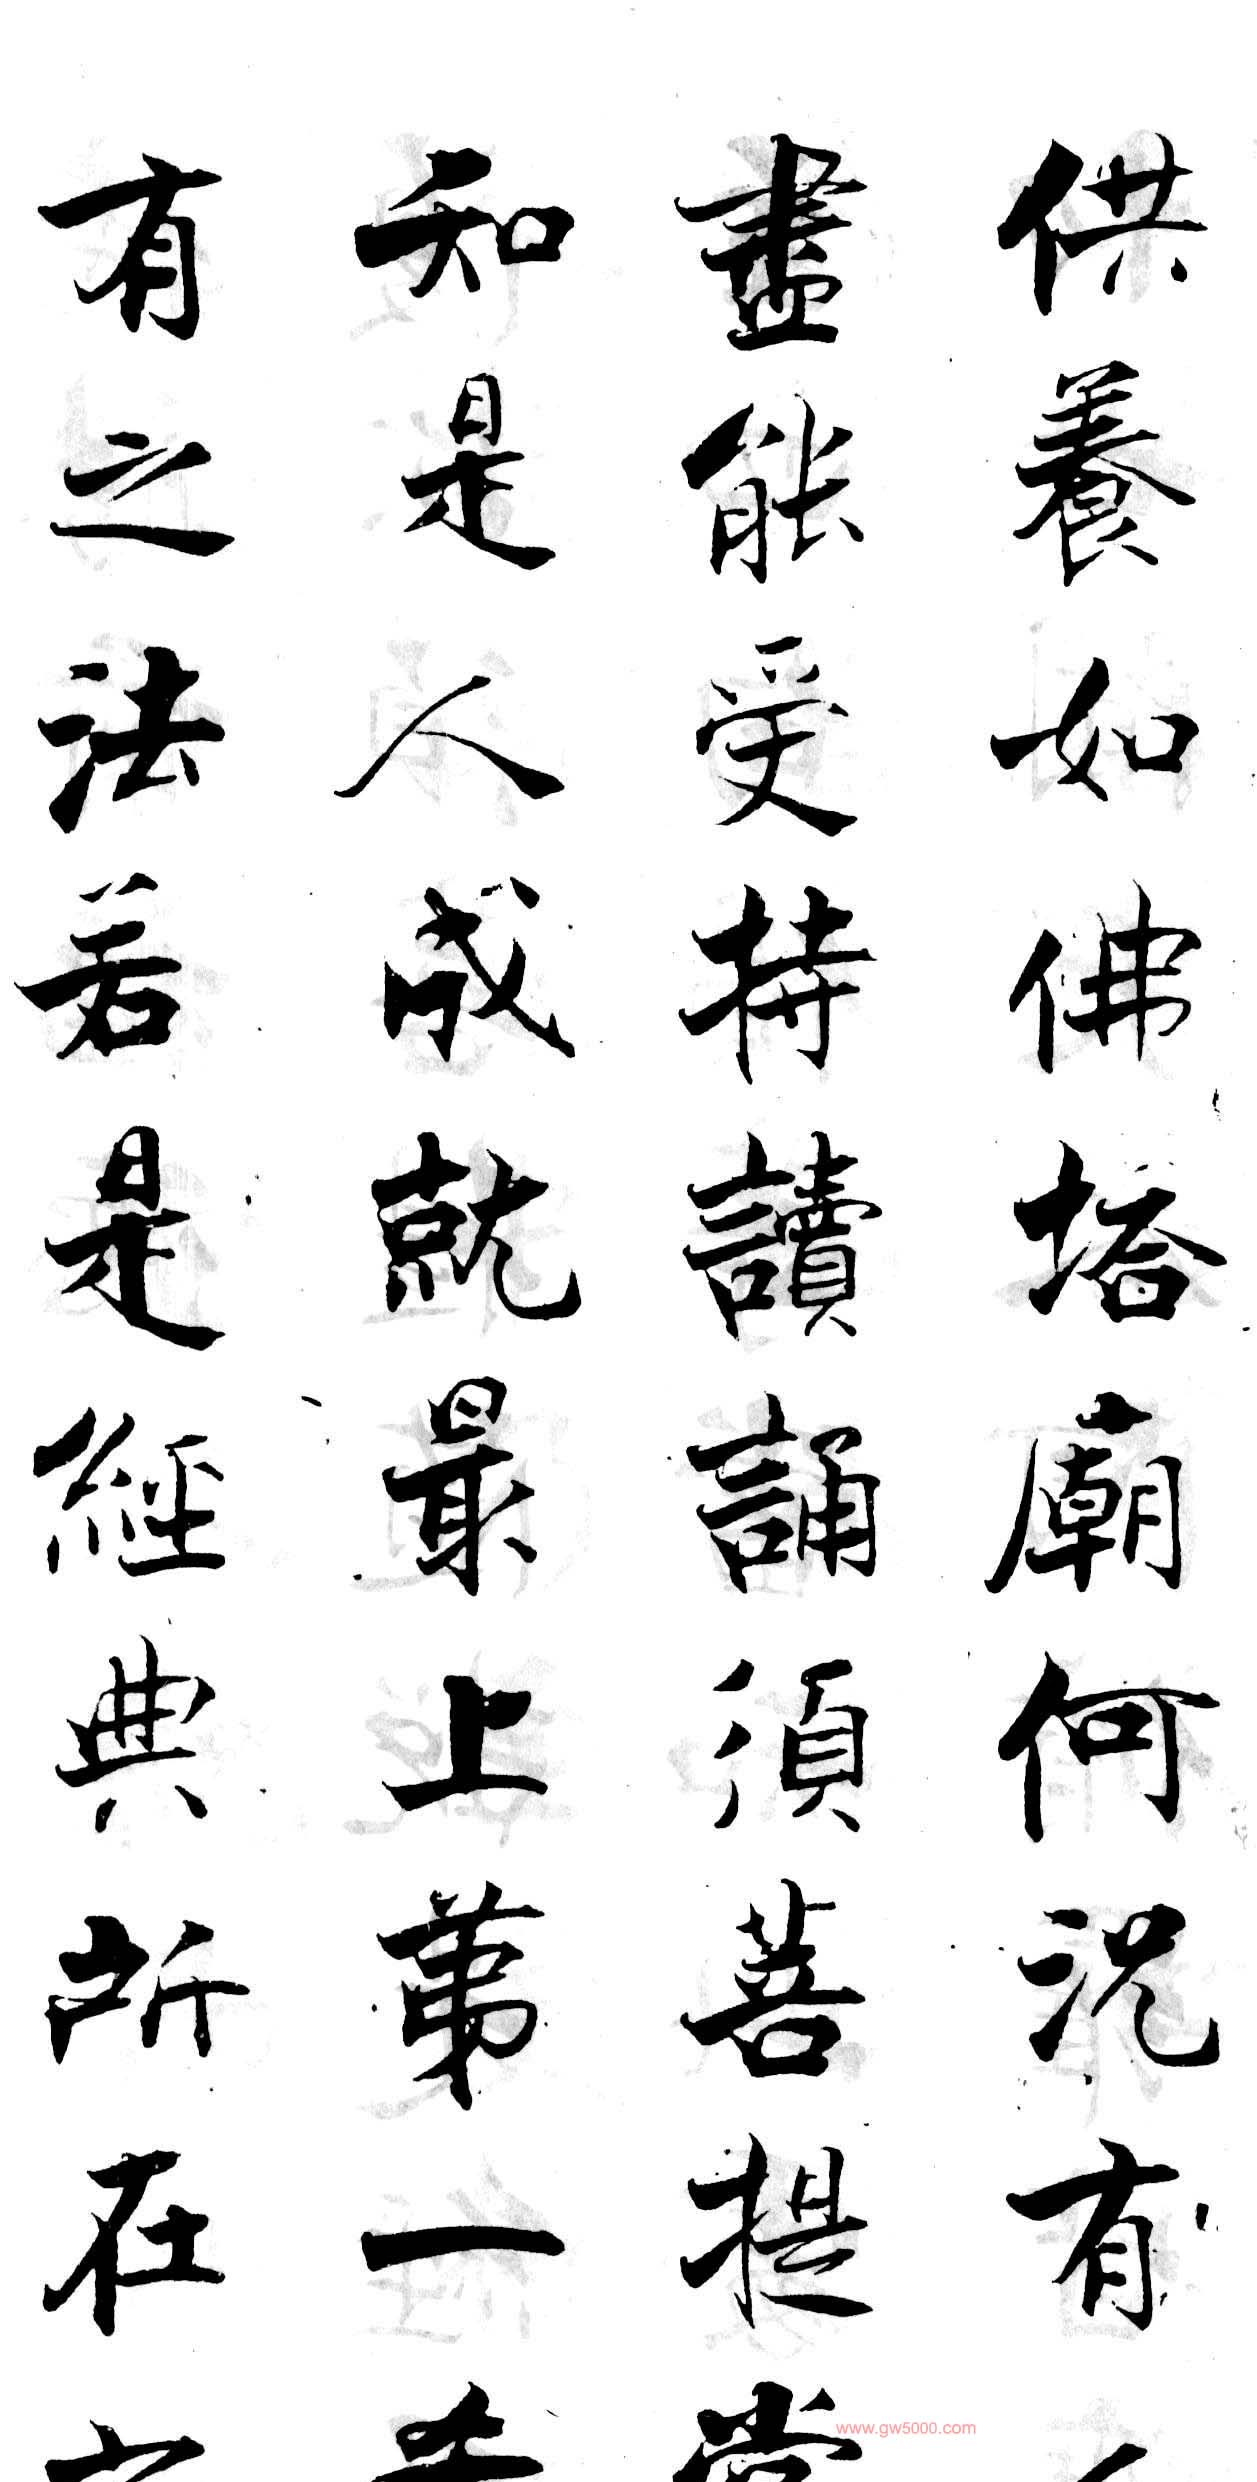 供養如佛塔廟何況有
盡能受持讀誦須菩提
知是人成就最上第一
有之法若是經典所在
www.gw5000.com